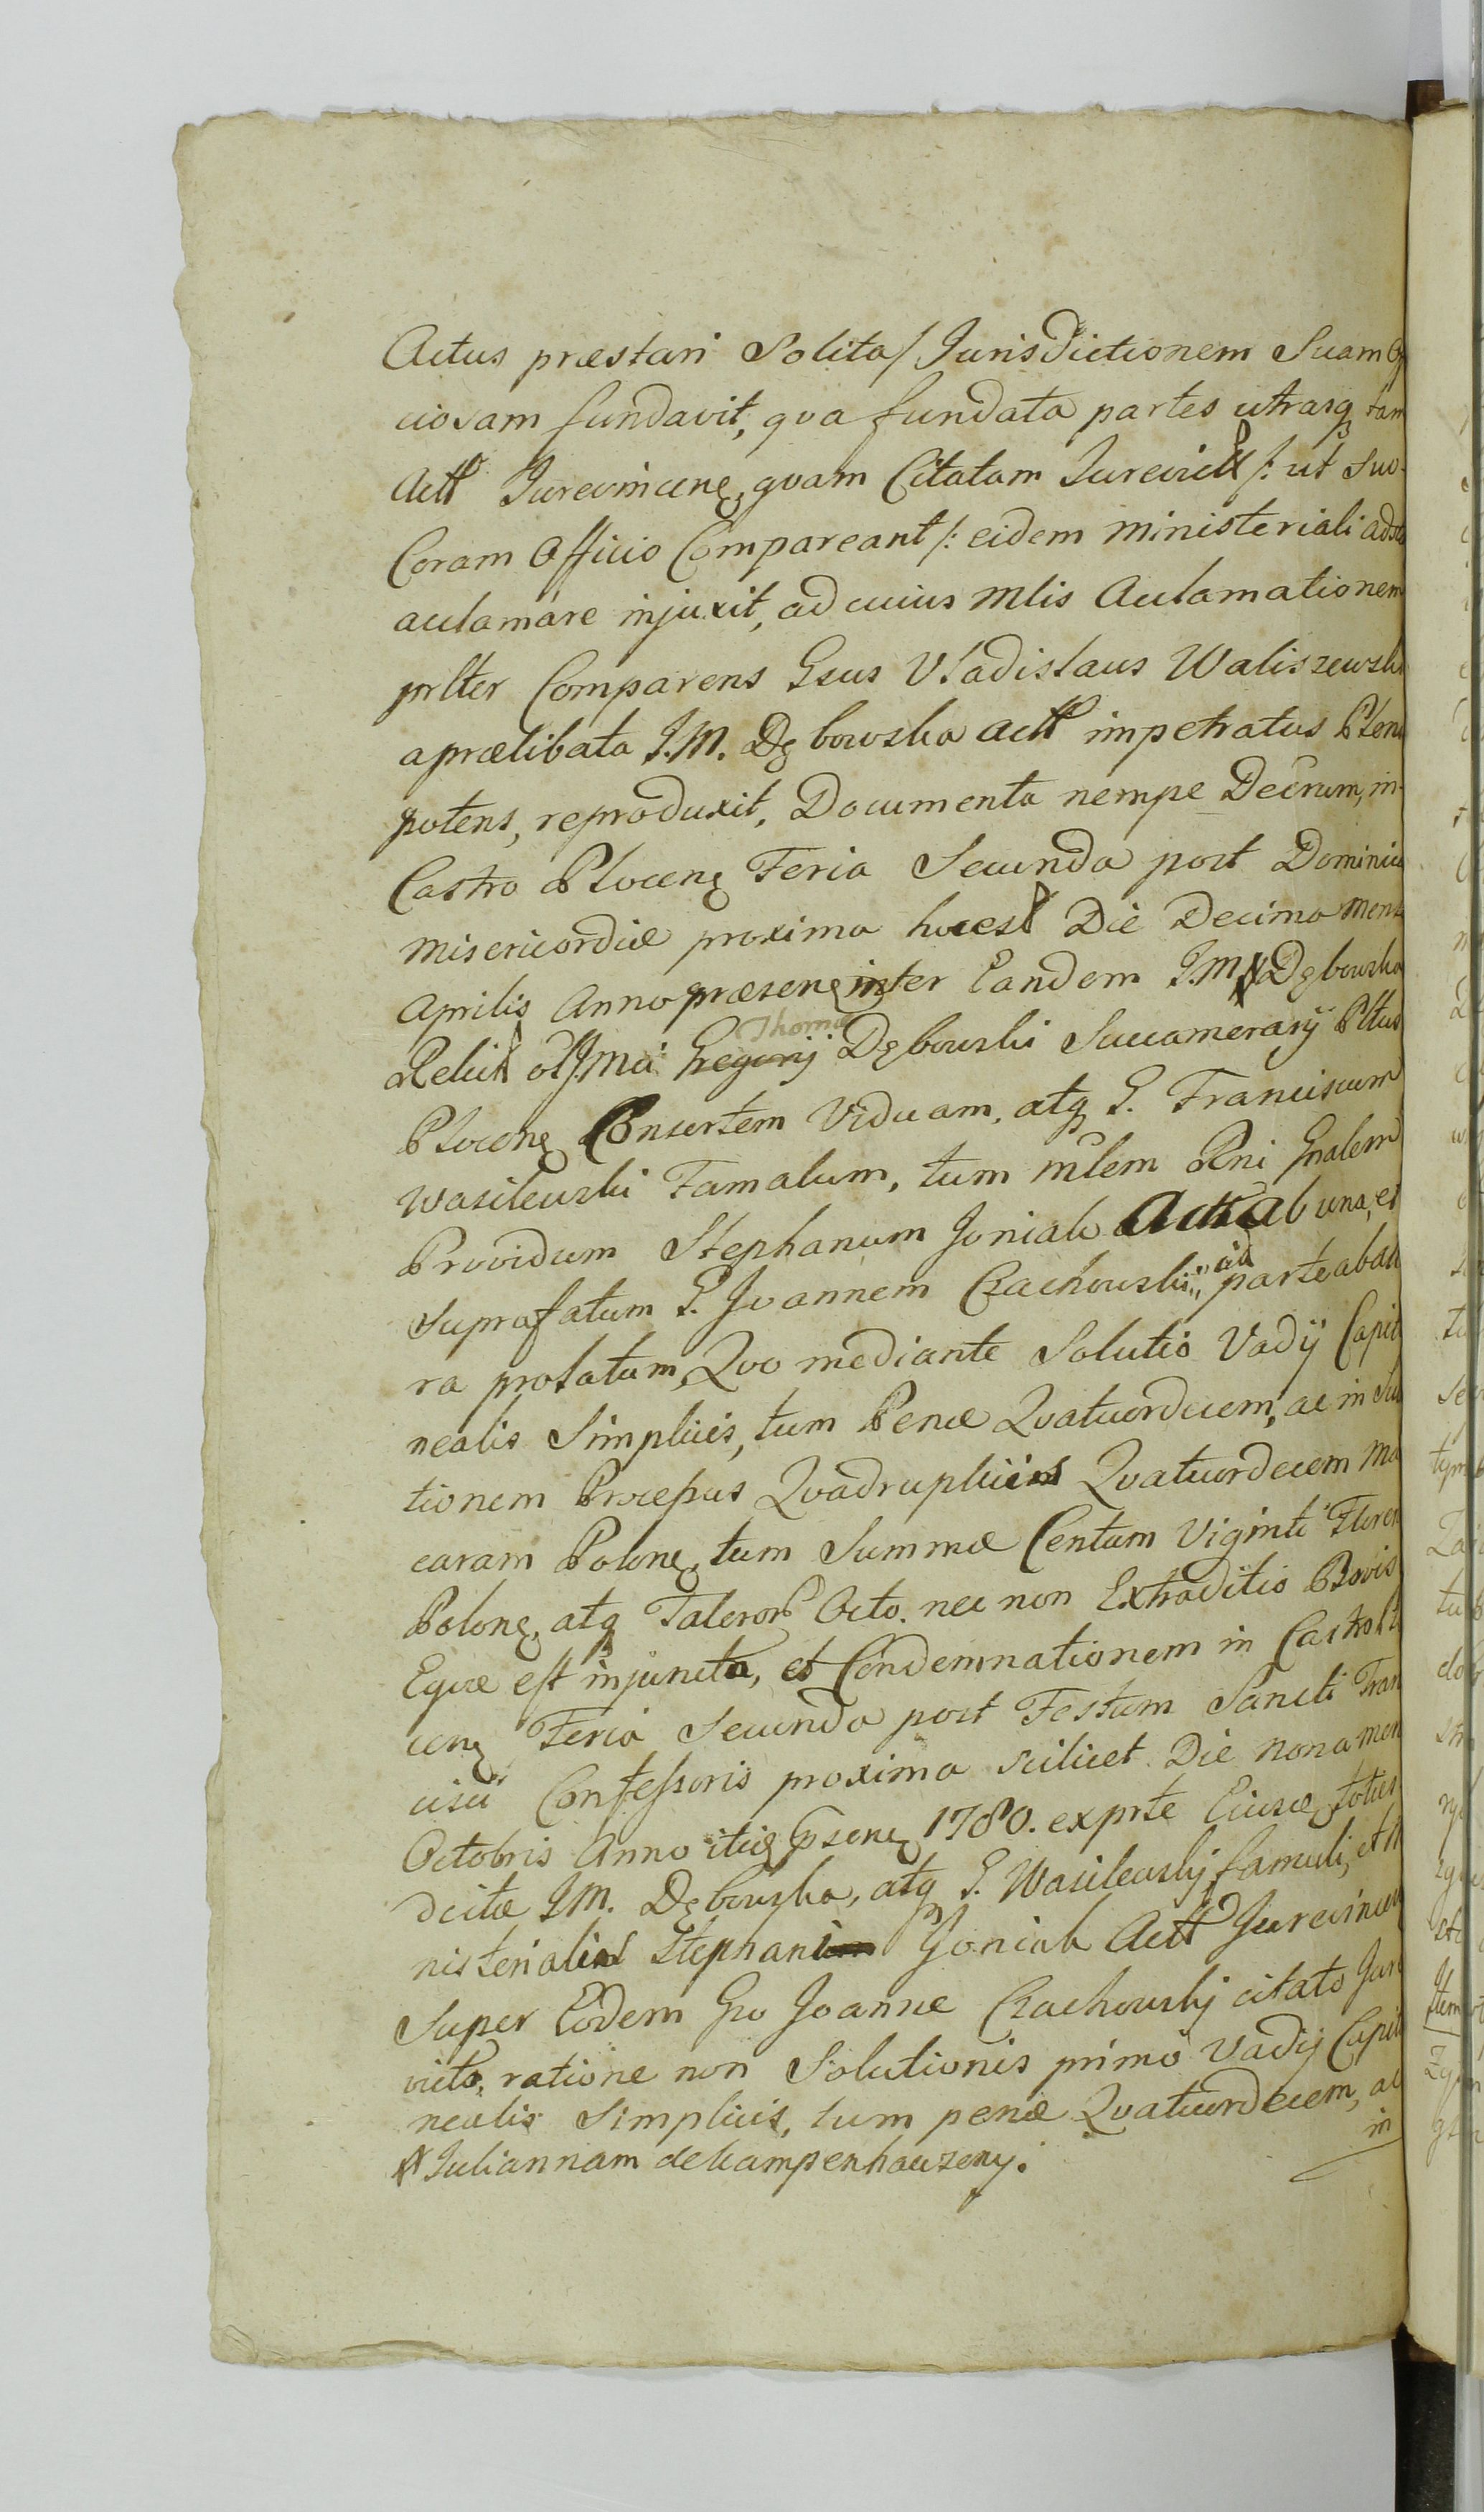 Actus præstari Solita/ Jurisdictionem Suam
ciosam fundavit, qva fundata partes utrasq tam
Actt Jurevincenę, qvam Citatam Jurevict /: ut Suo
Coram Officio Compareant /: eidem ministeriali
acclamare injuxit, ad cuius Mlis Acclamationem
prlter Comparens Gsus Vladislaus Waliszewski
a prælibata J.M. Dębowska actt impetratus Pleni
potens, reproduxit, Documenta nempe Decrum, in
Castro Plocenę Feria Secunda post Dominica
Misericordiæ proxima hocest Die Decima Mens
Aprilis Anno præsenę inter Eandem J.M. Dębowska
Thoma
Relict olJ.Mci Gregorij Dębowski Succamerarij Pltus
Plocenę Consortem Viduam, atq G. Franciscum
Wasilewski Famalum, tum mlem Rni Gnalem
Providum Stephanum Joniak Act ab una, et
Suprafatum G. Joannem Czachowski cit parte ab alt
ra prolatum, Qvo mediante Solutio Vadij Capit
nealis Simplicis, tum Penæ Qvatuordecem, ac in
tionem Processus Qvadruplicis Qvatuordecem Ma
caram Polonę, tum Summæ Centum Viginti Floren
Polonę, atq Taleror Octo. nec non Extraditio Bovis
Eqvæ est injuncta, et Condemnationem in Castro Pl
cenę Feria Secunda post Festum Sancti Fran
cisci Confessoris proxima scilicet Die nona men
Octobris Anno itię Psenę 1780. exprte Eiusæ toties
dictæ JM. Dębowska, atq G. Wasilewskij famuli, et M
nisterialis Stephani Joniak Actt Jurevincen
Super Eodem Gso Joanne Czachowskij citato Jure
victo, ratione non Solutionis primo Vadij Capit
nealis Simplicis, tum penæ Qvatuordecem, ac
in
Juliannam de kampenhauzeny.